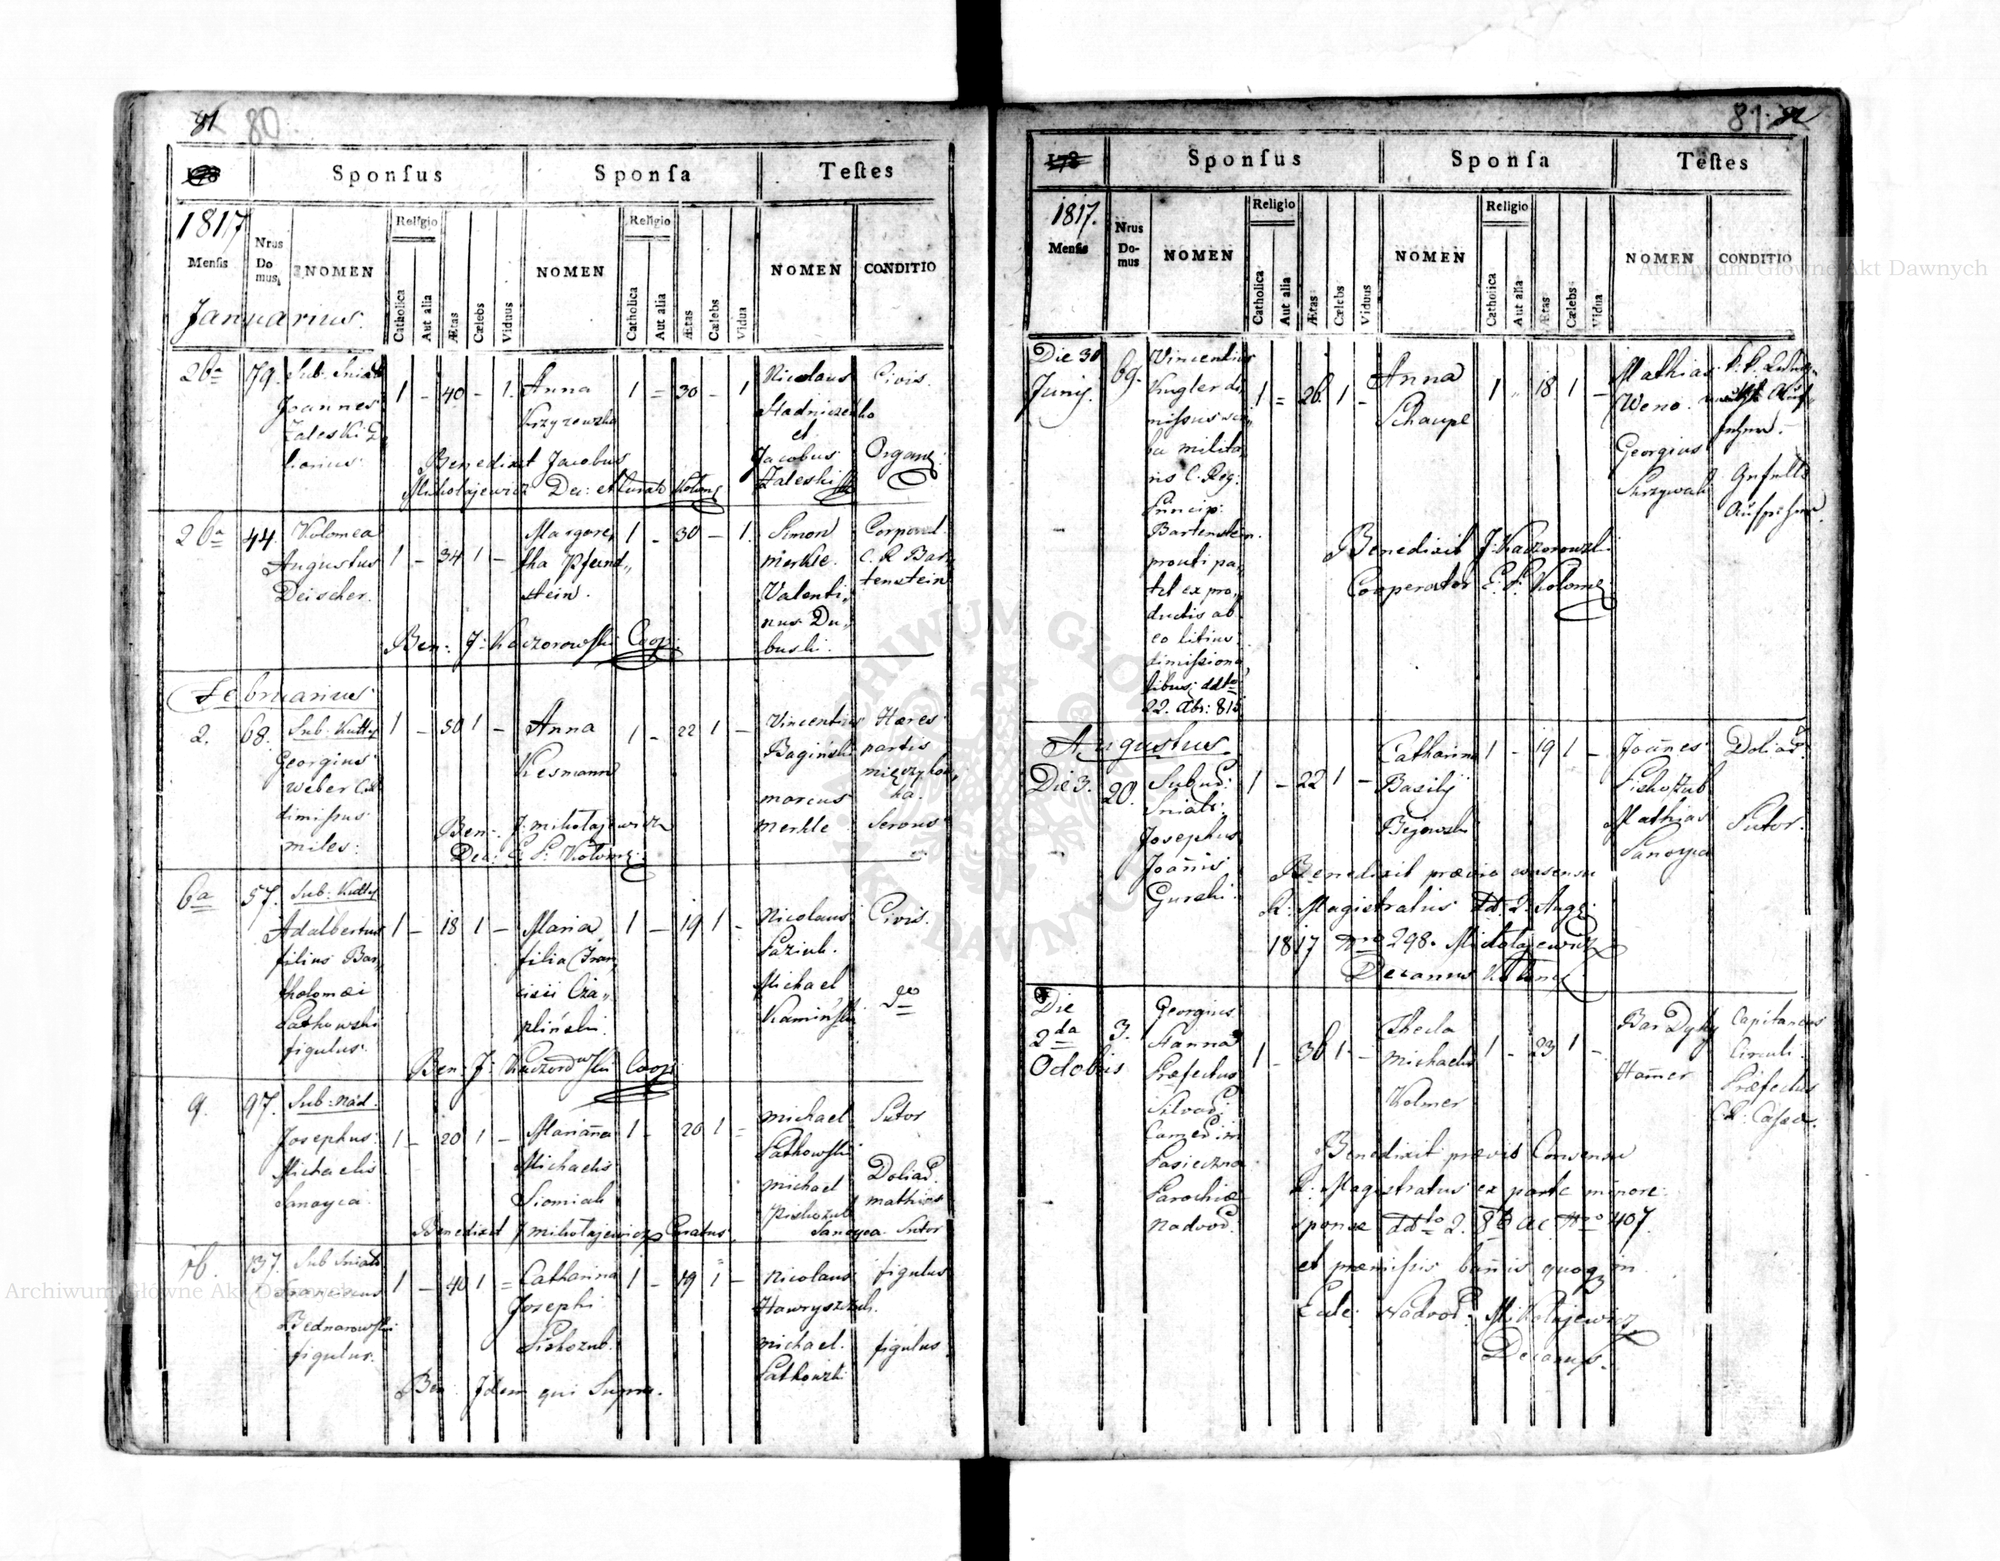 81 80
Sponsus Sponsa Testes
1817
Mensis
Nrus Domus
NOMEN
Religio
Catholica
Aut alia
Ætas
Cælebs
Viduus
NOMEN
Religio
Catholica
Aut alia
Ætas
Cælebs
Vidua
NOMEN
CONDITIO
Januarius.
26ta 79. Sub. Sniat
Joannes
Zaleski
1 – 40 – 1.
Anna
1 = 30 – 1
Nicolaus
et
Jacobus
Zaleski
Civis.
Benedixit Jacobus
Mikołajewicz Dec: et Curat:
26ta 44. Kolomea
Augustus
Deischer.
1 – 34 1 –
Margare,,
tha Pfund,,
stein.
1 – 30 – 1.
Simon
Merkle.
Valenti,,
nus Du,,
buski.
Corporal.
C. R. Bar,,
tenstein
Ben: J: Kaczorowski Coop:
Februarius
2. 68. Sub. Kutty
Georgius
Weber
dimissus
miles.
1 – 30 1 –
Anna
Kesmann
1 – 22 1 –
Vincentius
Bagiński
Marcus
Merkle
Hæres
partis
Ben: J. Mikołajewicz
Dec: E. P. Kołom:
6ta 57. Sub. Kutty
Adalbertus
filius Bar,,
tholomæi
Patkowski
figulus.
1 – 18 1 –
Maria
filia Fran,,
cisci Cza,,
pliński.
1 – 19 1 –
Nicolaus
Paziuk.
Michael
Kamiński
Civis.
dto
Ben: J: Kaczorowski Coop:
9. 97. Sub. Nad.
Josephus
Michaelis
Sanoyca
1 – 20 1 –
Marianna
Michaelis
Siomiak
1 – 20 1 =
Michael
Patkowski
Michael
Piskozub
Sutor
Doliar.
Mathias
Sanoyca Sutor
Benedixit J Mikołajewicz Curatus.
16. 137. Sub Sniat
Franciscus
Bednarowski
figulus.
1 – 40 1 =
Catharina
Josephi
Piskozub.
1 – 19 1 –
Nicolaus
Hawryszczuk.
Michael.
Patkowski
figulus
figulus
Ben: Idem qui Supra.
81. 82
Sponsus Sponsa Testes
1817.
Mensis
Nrus Domus
NOMEN
Religio
Catholica
Aut alia
Ætas
Cælebs
Viduus
NOMEN
Religio
Catholica
Aut alia
Ætas
Cælebs
Vidua
NOMEN
CONDITIO
Die 30
Junij.
69.
Vincentius
Kugler di,,
missus scri,,
ba milita,,
ris C. Reg:
Princip:
Bartenstein.
prouti pa,,
tet ex pro,,
ductis ab
eo litius
dimissiona,,
libus ddto
22. 815
1 = 26 1 –
Anna
Schaupl
1 " 18 1 –
Mathias
Weno.
Georgius
Skrzywak
Benedixit J: Kaczorowski
Cooperator E. P. Kolom:
Augustus
Die 3. 20.
Sub
Sniat:
Josephus
Joannis
Gurski.
1 – 22 1 –
Catharina
Basilij
1 – 19 1 –
Joannes
Piskozub
Mathias
Sanoyca
Doliar.
Sutor.
Benedixit prævio consensu
R. Magistratus dd. 2. Aug:
1817 Nro 298. Mikołajewicz
Decanus Kołom:
Die
2da
Octobris
3.
Georgius
Hanna
Præfectus
Silvar:
Camer in
Pasieczna
Parochiæ
Nadvor.
1 – 36 1 –
Thecla
Michaelis
Volmer
1 – 23 1 –
Bar Dyky
Hamer
Capitaneus
Circuli.
Præfectus
C. R. Cassæ.
Benedixit prævio Consensu
R: Magistratus ex parte minore.
sponsæ ddto 2. 8b ac Nro 407.
et præmissis bannis quoq in
Eccle: Nadvor: Mikołajewicz
Decanus.
Archiwum Główne Akt Dawnych
Archiwum Główne Akt Dawnych
ARCHIWUM GŁÓWNE AKT DAWNYCH